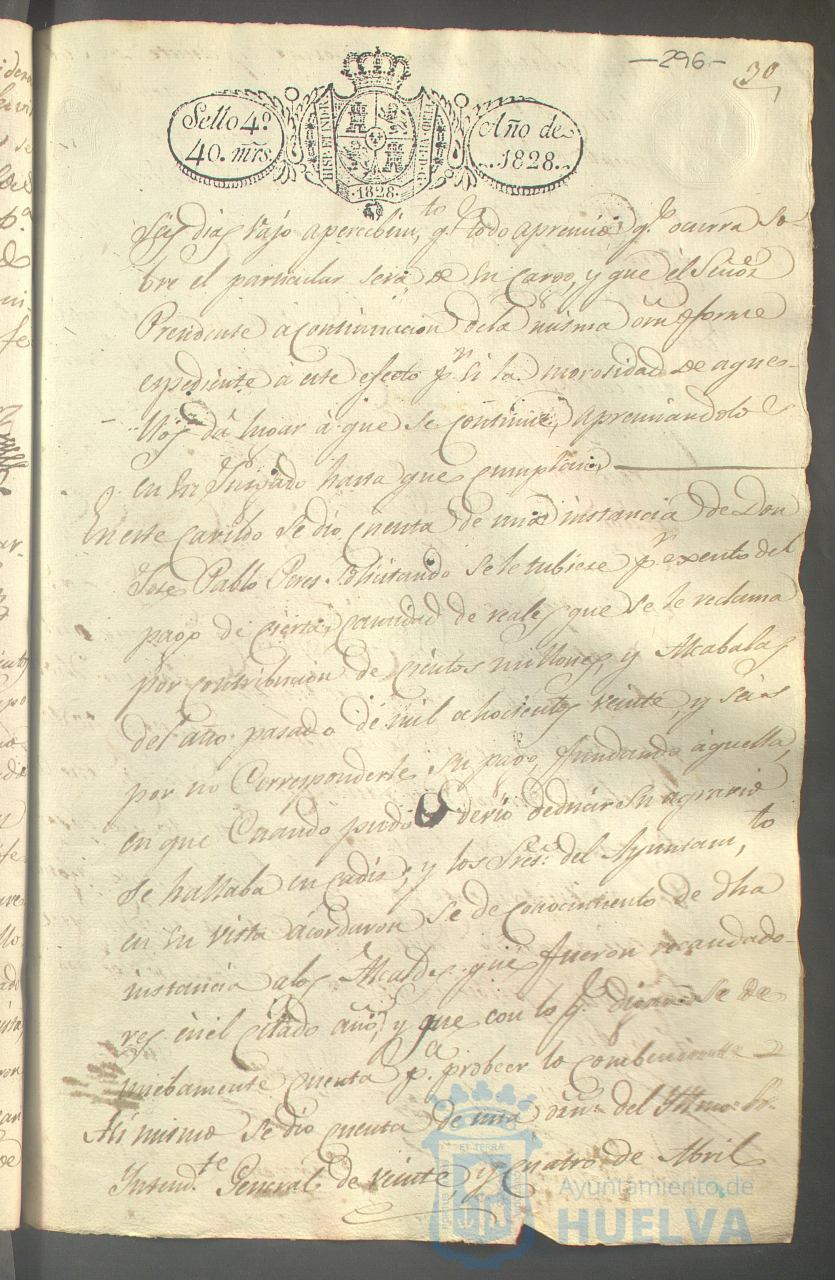 -296-
30
Sello 4º
40. mrs.
HISP. ET IND.
1828
Año de
1828.
seis dias bajo apercibim,to q.e todo apremio q.e ocurra so-
bre el particular será de su cargo, y que el Señor
Precidente à continuacion dela misma orn forme
espediente à este efecto p.r si la morosidad de aque-
llos dá lugar à que se continue, apremiandolo
en su Jusgado hasta que cumplan,
En este Cavildo se dio cuenta de una instancia de Don
Jose Pablo Peres solicitando se le tubiese p.r exento del
pago de cierta cantidad de reales que se le reclama
por contribucion de cientos millones, y Alcabalas
del año pasado de mil ochocientos veinte, y seis
por no Corresponderle su pago, fundando àquella,
en que Cuando pudo y devió deducir su agravio
se hallaba en Cadis; y los Sres. del Ayuntam,to
en su vista acordaron se de conocimiento de dha
instancia alos Alcaldes que fueron recaudado-
res en el citado año, y que con lo q.e digan se dé
nuebamente cuenta p.a probeer lo combeniente
Asi mismo se dio cuenta de una orn. del Yltmo. Sr.
Intend.te General de veinte y cuatro de Abril
Ayuntamiento de
HUELVA